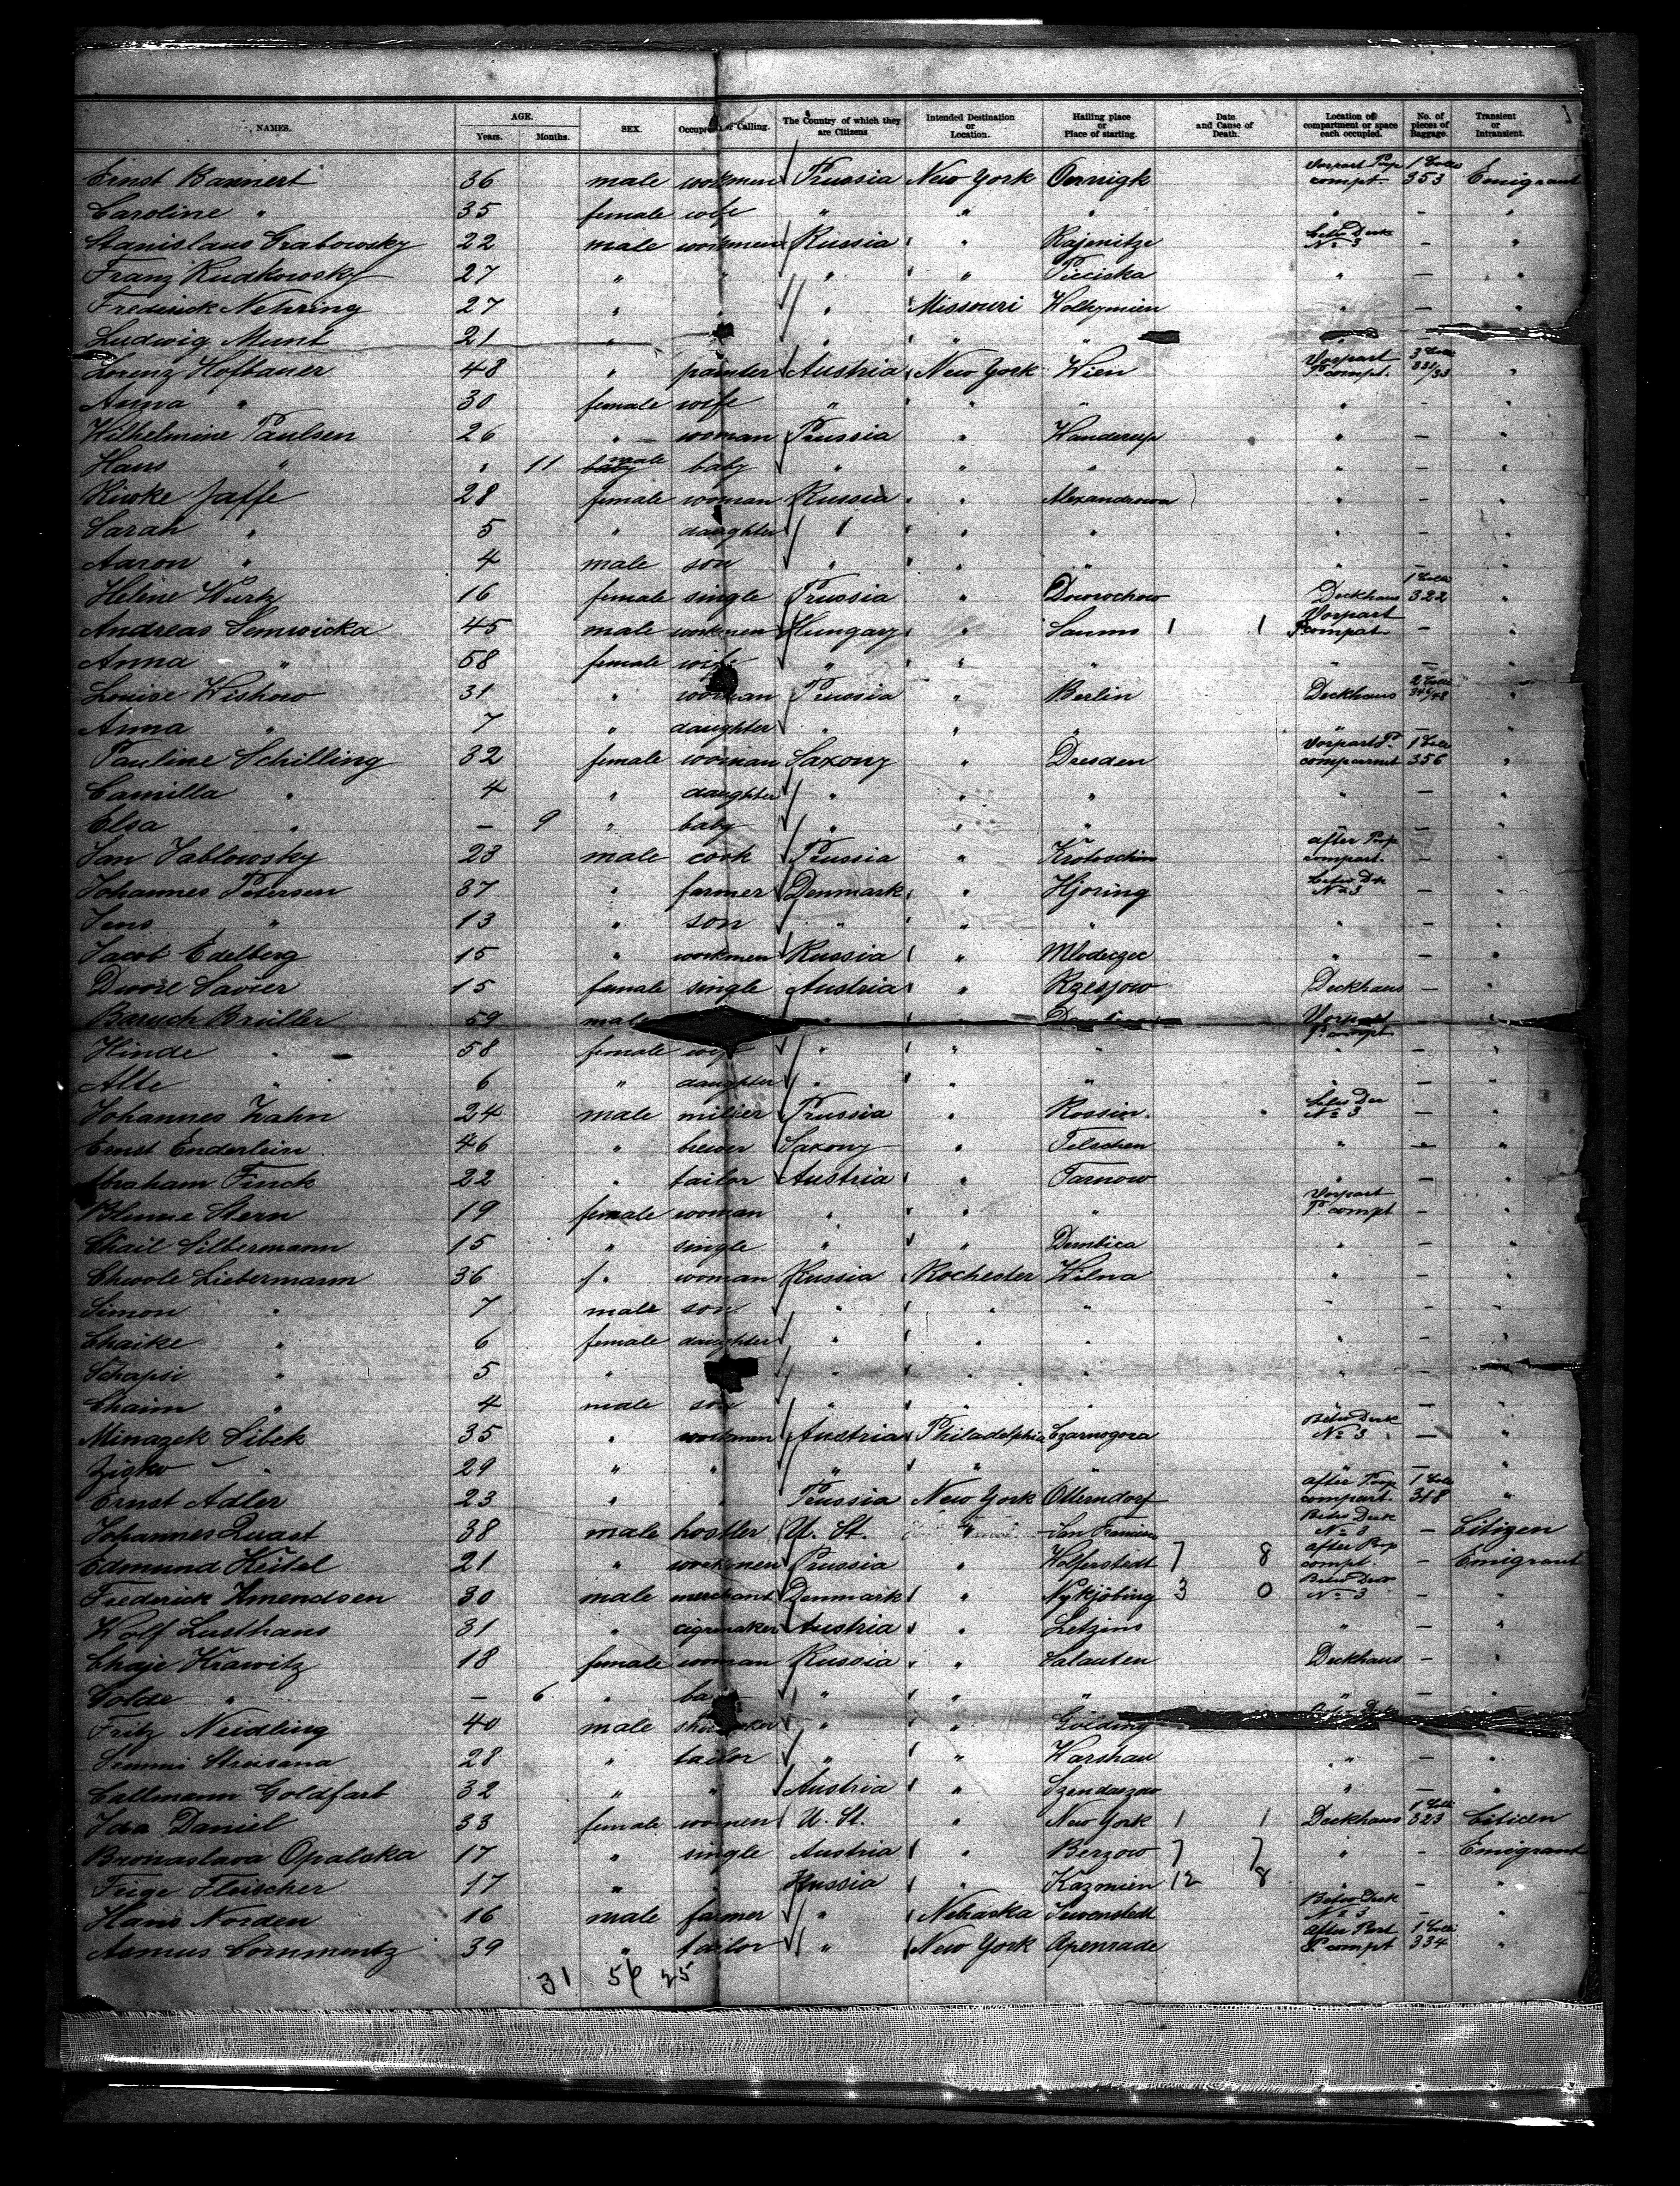 NAMES. AGE. Years. Months. SEX. Occupation or Calling. The Country of which they are Citizens Intended Destination or Location. Hailing place or Place of starting. Date and Cause of Death. Location of compartment or space each occupied. No. of pieces of Baggage. Transient or Intransient.
Ernst Bannert 36 male workmen Prussia New York Oernigk Vorpart Poop compt. 1 Collo 353 Emigrant
Caroline " 35 female wife " " " " - "
Stanislaus Grabowsky 22 male workmen Russia " Rajenitze Betw Deck No 3 - "
Franz Rudkowsky 27 " " " " Picciska " - "
Frederick Nehring 27 " " " Missouri Wolhynien " - "
Ludwig Munt 21 " " " " " -
Lorenz Hofbauer 48 " painter Austria New York Wien Vorpart P. compt. 3 Colli 331/33 "
Anna " 30 female wife " " " " - "
Wilhelmine Paulsen 26 " woman Prussia " Handerup " - "
Hans " " 11 male baby baby " " " " - "
Riwke Jaffe 28 female woman Russia " Alexandrowa " - "
Sarah " 5 " daughter " " " " - "
Aaron " 4 male son " " " " - "
Helene Wurtz 16 female single Prussia " Dowrochow Deckhaus 1 Collo 322 "
Andreas Semwicka 45 male workmen Hungary " Saums 1 1 Vorpart P compat. - "
Anna " 58 female wife " " " " - "
Louise Wishow 31 " woman Prussia " Berlin Deckhaus 2 Colli 346/48 "
Anna " 7 " daughter " " " " - "
Pauline Schilling 32 female woman Saxony " Dresden Vorpart P. 1 Collo 356 "
Camilla " 4 " daughter " " " " - "
Elsa " - 9 " baby " " " " - "
Jan Jablowsky 23 male cook Prussia " Krotoschin after Poop compart. - "
Johannes Petersen 37 " farmer Denmark " Hjoring Betw Dek No 3 - "
Jens " 13 " son " " " " - "
Jacob Edelberg 15 " workmen Russia " Mlodeczec " - "
Dwore Savier 15 female single Austria " Rzesjow Deckhaus - "
Baruch Brüller 59 male " " Vorpart P. compt - "
Hinde " 58 female wife " " " " - "
Alte " 6 " daughter " " " " - "
Johannes Zahn 24 male miller Prussia " Rossin. No 3 - "
Ernst Enderlein 46 " brewer Saxony " Telschen " - "
Abraham Finck 22 " tailor Austria " Tarnow " - "
Blume Stern 19 female woman " " " Vorpart P. compt - "
Chail Silbermann 15 " single " " Dembica " - "
Chwole Liebermann 36 f. woman Russia Rochester Wilna " - "
Simon " 7 male son " " " " - "
Chaike " 6 female daughter " " " " - "
Schapsi " 5 " " " " " - "
Chaim " 4 male son " " " " - "
Minazek Sibek 35 " workman Austria Philadelphia Czarnogora Betw Deck No 3 - "
Zigko " 29 " " " " " " - "
Ernst Adler 23 " " Prussia New York Otterndorf after Poop compart. 1 Collo 318 "
Johannes Quast 38 male hostler U. St. " San Francisco Betw Deck No 3 - Citizen
Edmund Keitel 21 " workmen Prussia " Wolferstedt 7 8 after Poop compt. - Emigrant
Frederick Kmendsen 30 male merchant Denmark " Nykjöbing 3 0 Betw Deck No 3 - "
Wolf Lusthaus 31 " cigrmaker Austria " Letzins " - "
Chaje Krawitz 18 female woman Russia " Salauten Deckhaus - "
Golde " - 6 " ba " " " " - "
Fritz Neidling 40 male " " Golding Betw Deck
Simmi Streisana 28 " tailor " " Warshau " - "
Callmann Goldfart 32 " " Austria " " - "
Ida Daniel 33 female women U. St. " New York 1 1 Deckhaus 1 Collo 323 Citicen
Bronaslava Opalska 17 " single Austria " Berzow 7 7 " - Emigrant
Feige Fleischer 17 " " Russia " Kazmien 12 8 " - "
Hans Norden 16 male farmer " Nebraska Sewenstedt Betw Deck No 3 - "
Asmus Commentz 39 " tailor " New York Apenrade After Part P. compt 1 Collo 334 "
31 56 25